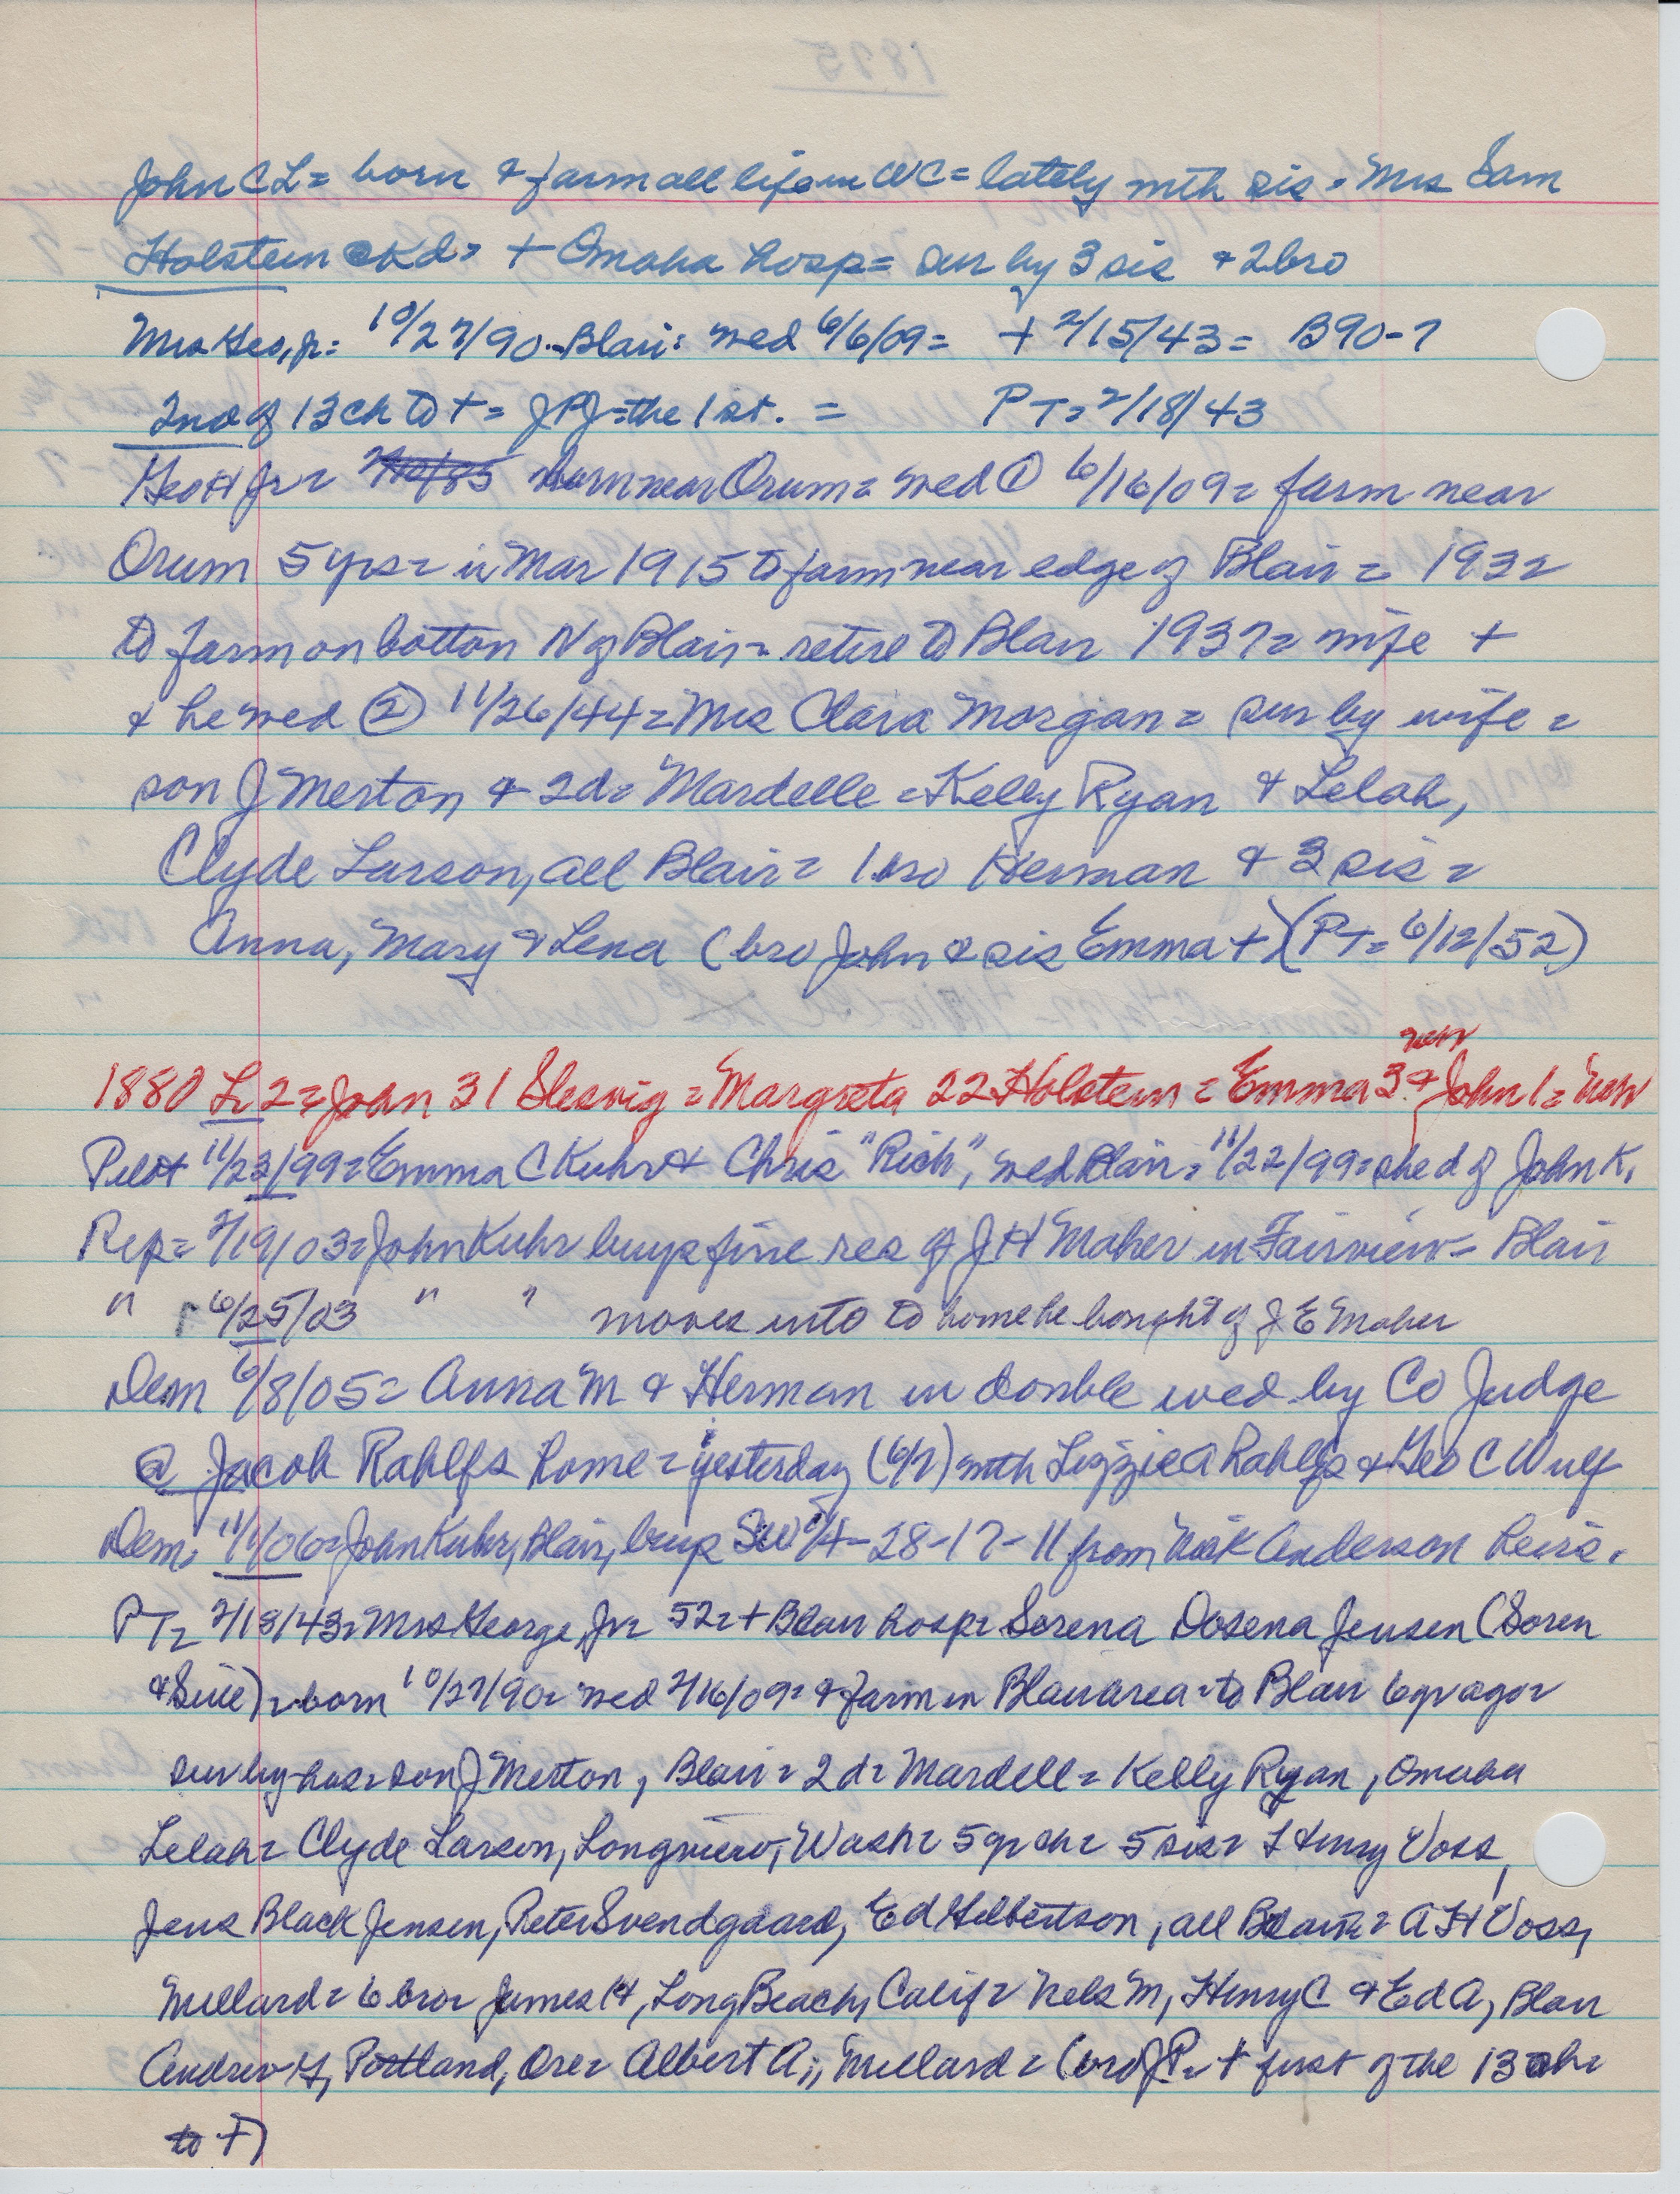 John C L = born & farm all life in WC = lately with sis = Mrs Sam
Holstein = + Omaha hosp = sur by 3 sis & 2 bro
Mrs Geo, Jr: 10/27/90 - Blair: wed 6/6/09 = + 2/15/43 = B90-7
2nd of 13 ch to + = JPJ = the 1st. = PT = 2/18/43
Geo H Jr = born near Orum = wed ① 6/16/09 = farm near
Orum 5 yrs = in Mar 1915 to farm near edge of Blair = 1932
to farm on botton N of Blair = retire to Blair 1937 = wife +
& he wed ② 11/26/44 = Mrs Clara Morgan = sur by wife =
son J Merton & 2d = Mardelle = Kelly Ryan & Lelah,
Clyde Larson, all Blair = 1 bro Herman & 3 sis =
Anna, Mary & Lena (bro John & sis Emma +) (PT = 6/12/52)
new
1880 L 2 = John 31 Slesvig = Margreta 22 Holstein = Emma 3 & John 1 = new
Pilot 11/23/99 = Emma C Kuhr & Chris "Rich", wed Blair = 11/22/99 = she d of John K.
Rep = 2/19/03 = John Kuhr buys fine res of J H Maher in Fairview - Blair
" 6/25/03 " " moves into to home he bought of J E Maher
Dem 6/8/05 = Anna M & Herman in double wed by Co Judge
@ Jacob Rahlfs home = yesterday (6/7) with Lizzie A Rahlfs & Geo C Wulf
Dem: 11/1/06 = John Kuhr, Blair, buys SW 1/4 - 28-17-11 from Nick Anderson heirs.
PT = 2/18/43 = Mrs George, Jr = 52 = + Blair hosp = Sorena Dosena Jensen (Soren
& Sine) = born 10/27/90 = wed 2/16/09 = & farm in Blair area = to Blair 6 yr ago =
sur by hus = son J Merton, Blair = 2 d = Mardell = Kelly Ryan, Omaha
Lelah = Clyde Larson, Longview, Wash = 5 gr ch = 5 sis = Henry Voss,
Jens Black Jensen, Peter Svendgaard, Ed Hilbertson, all Blair = A H Voss,
Millard = 6 bro = James H, Long Beach, Calif = Nels M, Henry C & Ed A, Blair
Andrew G, Portland, Ore = Albert A,, Millard = (bro J P = + first of the 13 ch =
to +)